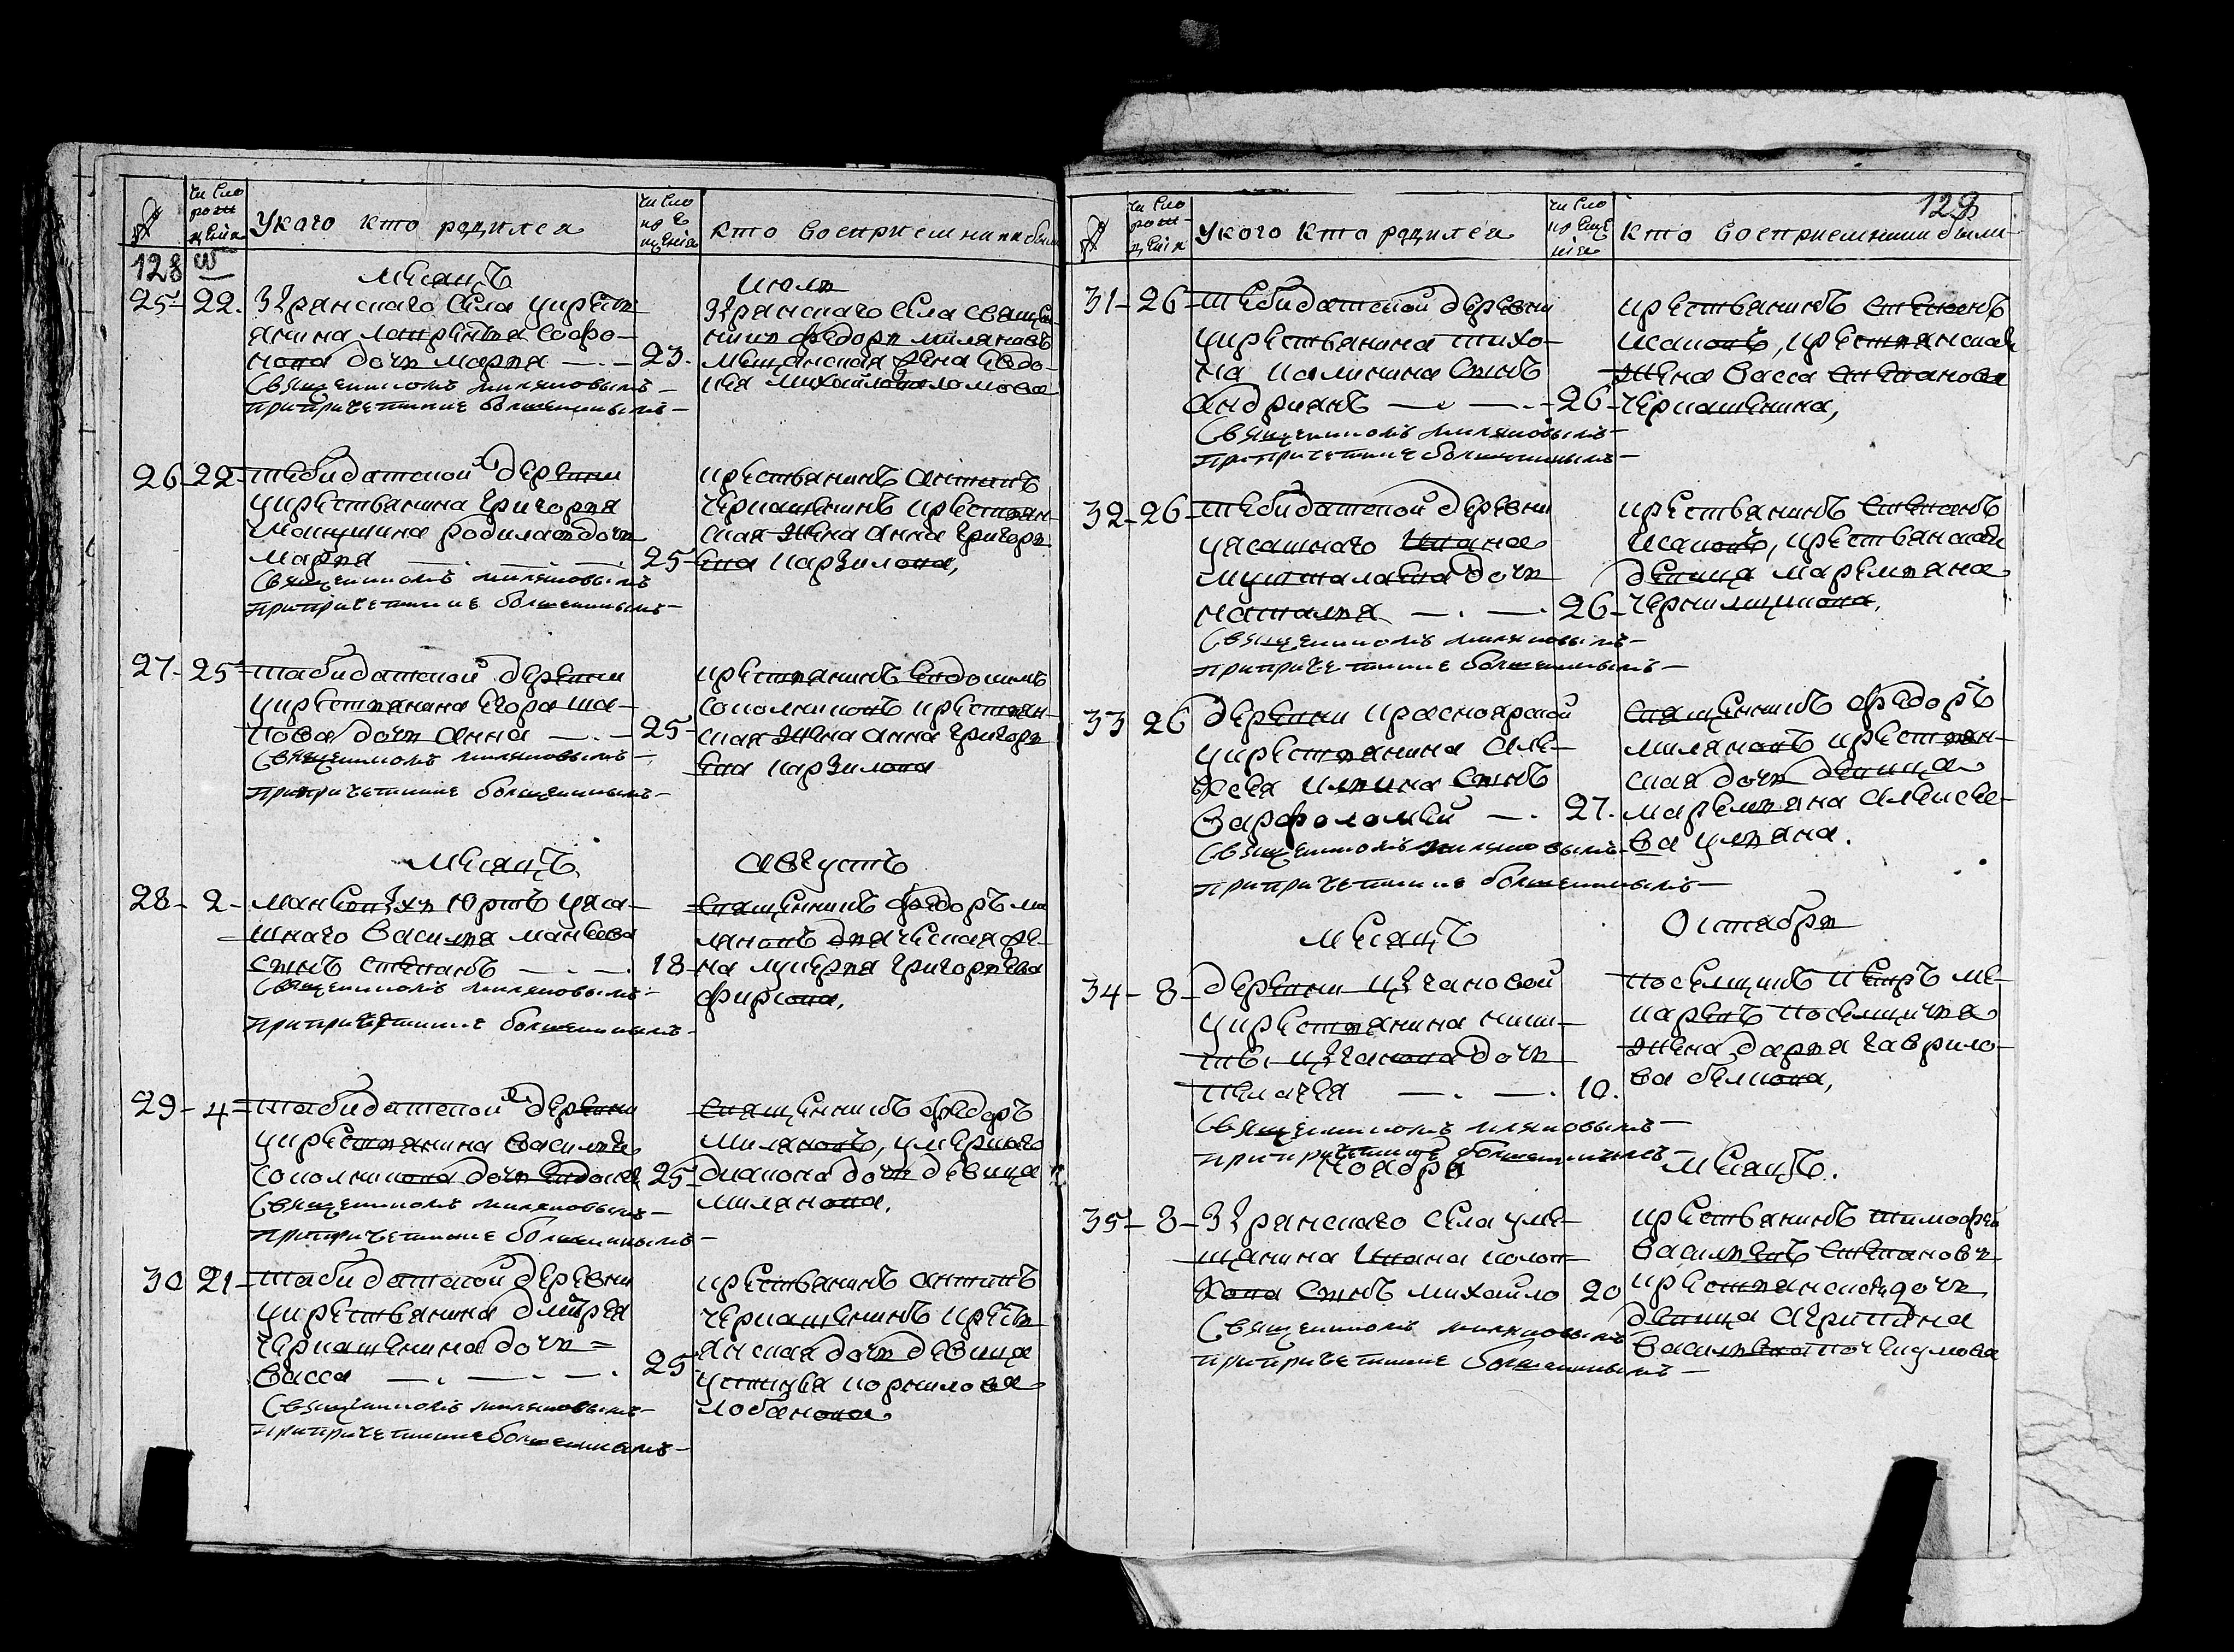 №
число рождения
У кого кто родился
число крещения
кто восприемники были
128 об
Месяцъ
Июля
25 - 22. Зырянскаго села у крестья-
янина Лаврентья Софо-
нова дочь Марья — 23.
Священникомъ Миляновымъ
при причетнике Большенинымъ
Зырянскаго села священ-
никъ Федоръ Миляновъ
мещанская жена Евдо-
кея Михайлова
26 - 22 - Шебидатской деревни
у крестьянина Григорья
родилась дочь
Марья — 25 -
Священникомъ Миляновымъ
при причетнике
крестьянинъ Антипъ
Черкашенинъ крестьян-
ская жена Анна Григорь-
ева Карзилова,
27 - 25 - Шабидатской деревни
у крестьянина Егора Ша-
кова дочь Анна — 25 -
Священникомъ Миляновымъ
при причетнике
крестьянинъ Евдокимъ
Соколниковъ крестьян-
ская жена Анна Григорь-
ева Карзилова
Месяцъ
Августъ
28 - 2 - юртъ у яса-
шнаго Василья
сынъ Степанъ — 18 -
Священникомъ Миляновымъ
при причетнике
священникъ Федоръ Ми-
ляновъ дьяческая же-
на Лукерья Григорьева
Фирсова,
29 - 4 - Шабидатской деревни
у крестьянина Василья
Соколникова дочь Евдокея 25
Священникомъ Миляновымъ
при причетнике
священникъ Федоръ
Миляновъ, умершаго
диакона дочь девица
Милянова.
30 21 - Шабидатской деревни
у крестьянина Дмитрея
Черкашенина дочь =
Васса — 25
Священникомъ Миляновымъ
при причетнике
крестьянинъ Антипъ
Черкашенинъ кресть-
янская дочь девица
Устинья Корнилова
Лобанова
129
№
число рождения
У кого кто родился
число крещения
кто восприемники были
31 - 26 - Шебидатской деревни
у крестьянина Тихо-
на Калинина сынъ
Андриянъ — 26 -
Священникомъ Миляновымъ
при причетнике
крестьянинъ Степанъ
Исаковъ, крестьянская
жена Васса Степанова
Черкашенина,
32 - 26 - Шебидатской деревни
у ясашнаго Ивана
дочь
Наталья — 26 -
Священникомъ Миляновымъ
при причетнике
крестьянинъ Степанъ
Исаковъ, крестьянская
девица Маремьяна
33 26 деревни Красноярской
у крестьянина Але-
ксея Ильина сынъ
Варфоломей — 27.
Священникомъ Миляновымъ
при причетнике
священникъ Федоръ
Миляновъ крестьян-
ская дочь девица
Маремьяна Алексее-
ва Ульяна.
Месяцъ
Октябрь
34 - 8 - деревни Цыгановой
у крестьянина Ники-
ты Цыганова дочь
Пелагея — 10.
Священникомъ Миляновымъ
при причетнике
поселщикъ Петръ Ма-
каревъ поселщичья
жена Дарья Гаврило-
ва Белкова,
Ноября
Месяцъ.
35 - 8 - Зырянскаго села у ме-
щанина Ивана
сынъ Михайло 20
Священникомъ Миляновымъ
при причетнике
крестьянинъ Тимофей
Васильевъ Степановъ
крестьянская дочь
девица Агрипина
Васильева